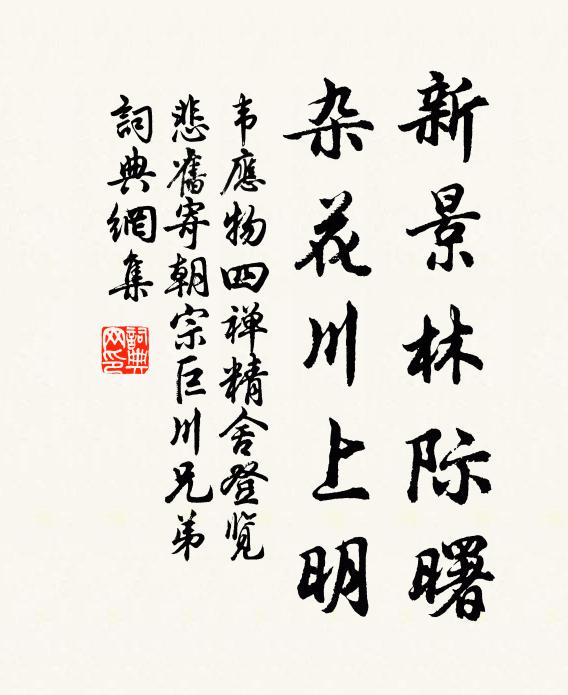 新景林际曙
杂花川上明
韦應物四禅精舍登览
悲舊寄朝宗巨川兄弟
詞典網集
詞典网印